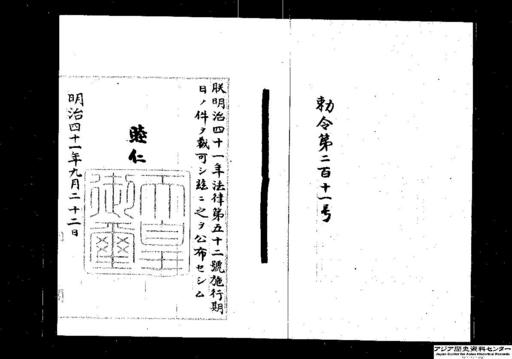 勅令第二百十一号
朕明治四十一年法律第五十二號施行期
日ノ件ヲ裁可シ茲ニ之ヲ公布セシム
睦仁
天皇御璽
明治四十一年九月二十二日
アジア歴史資料センター
Japan Center for Asian Historical Records